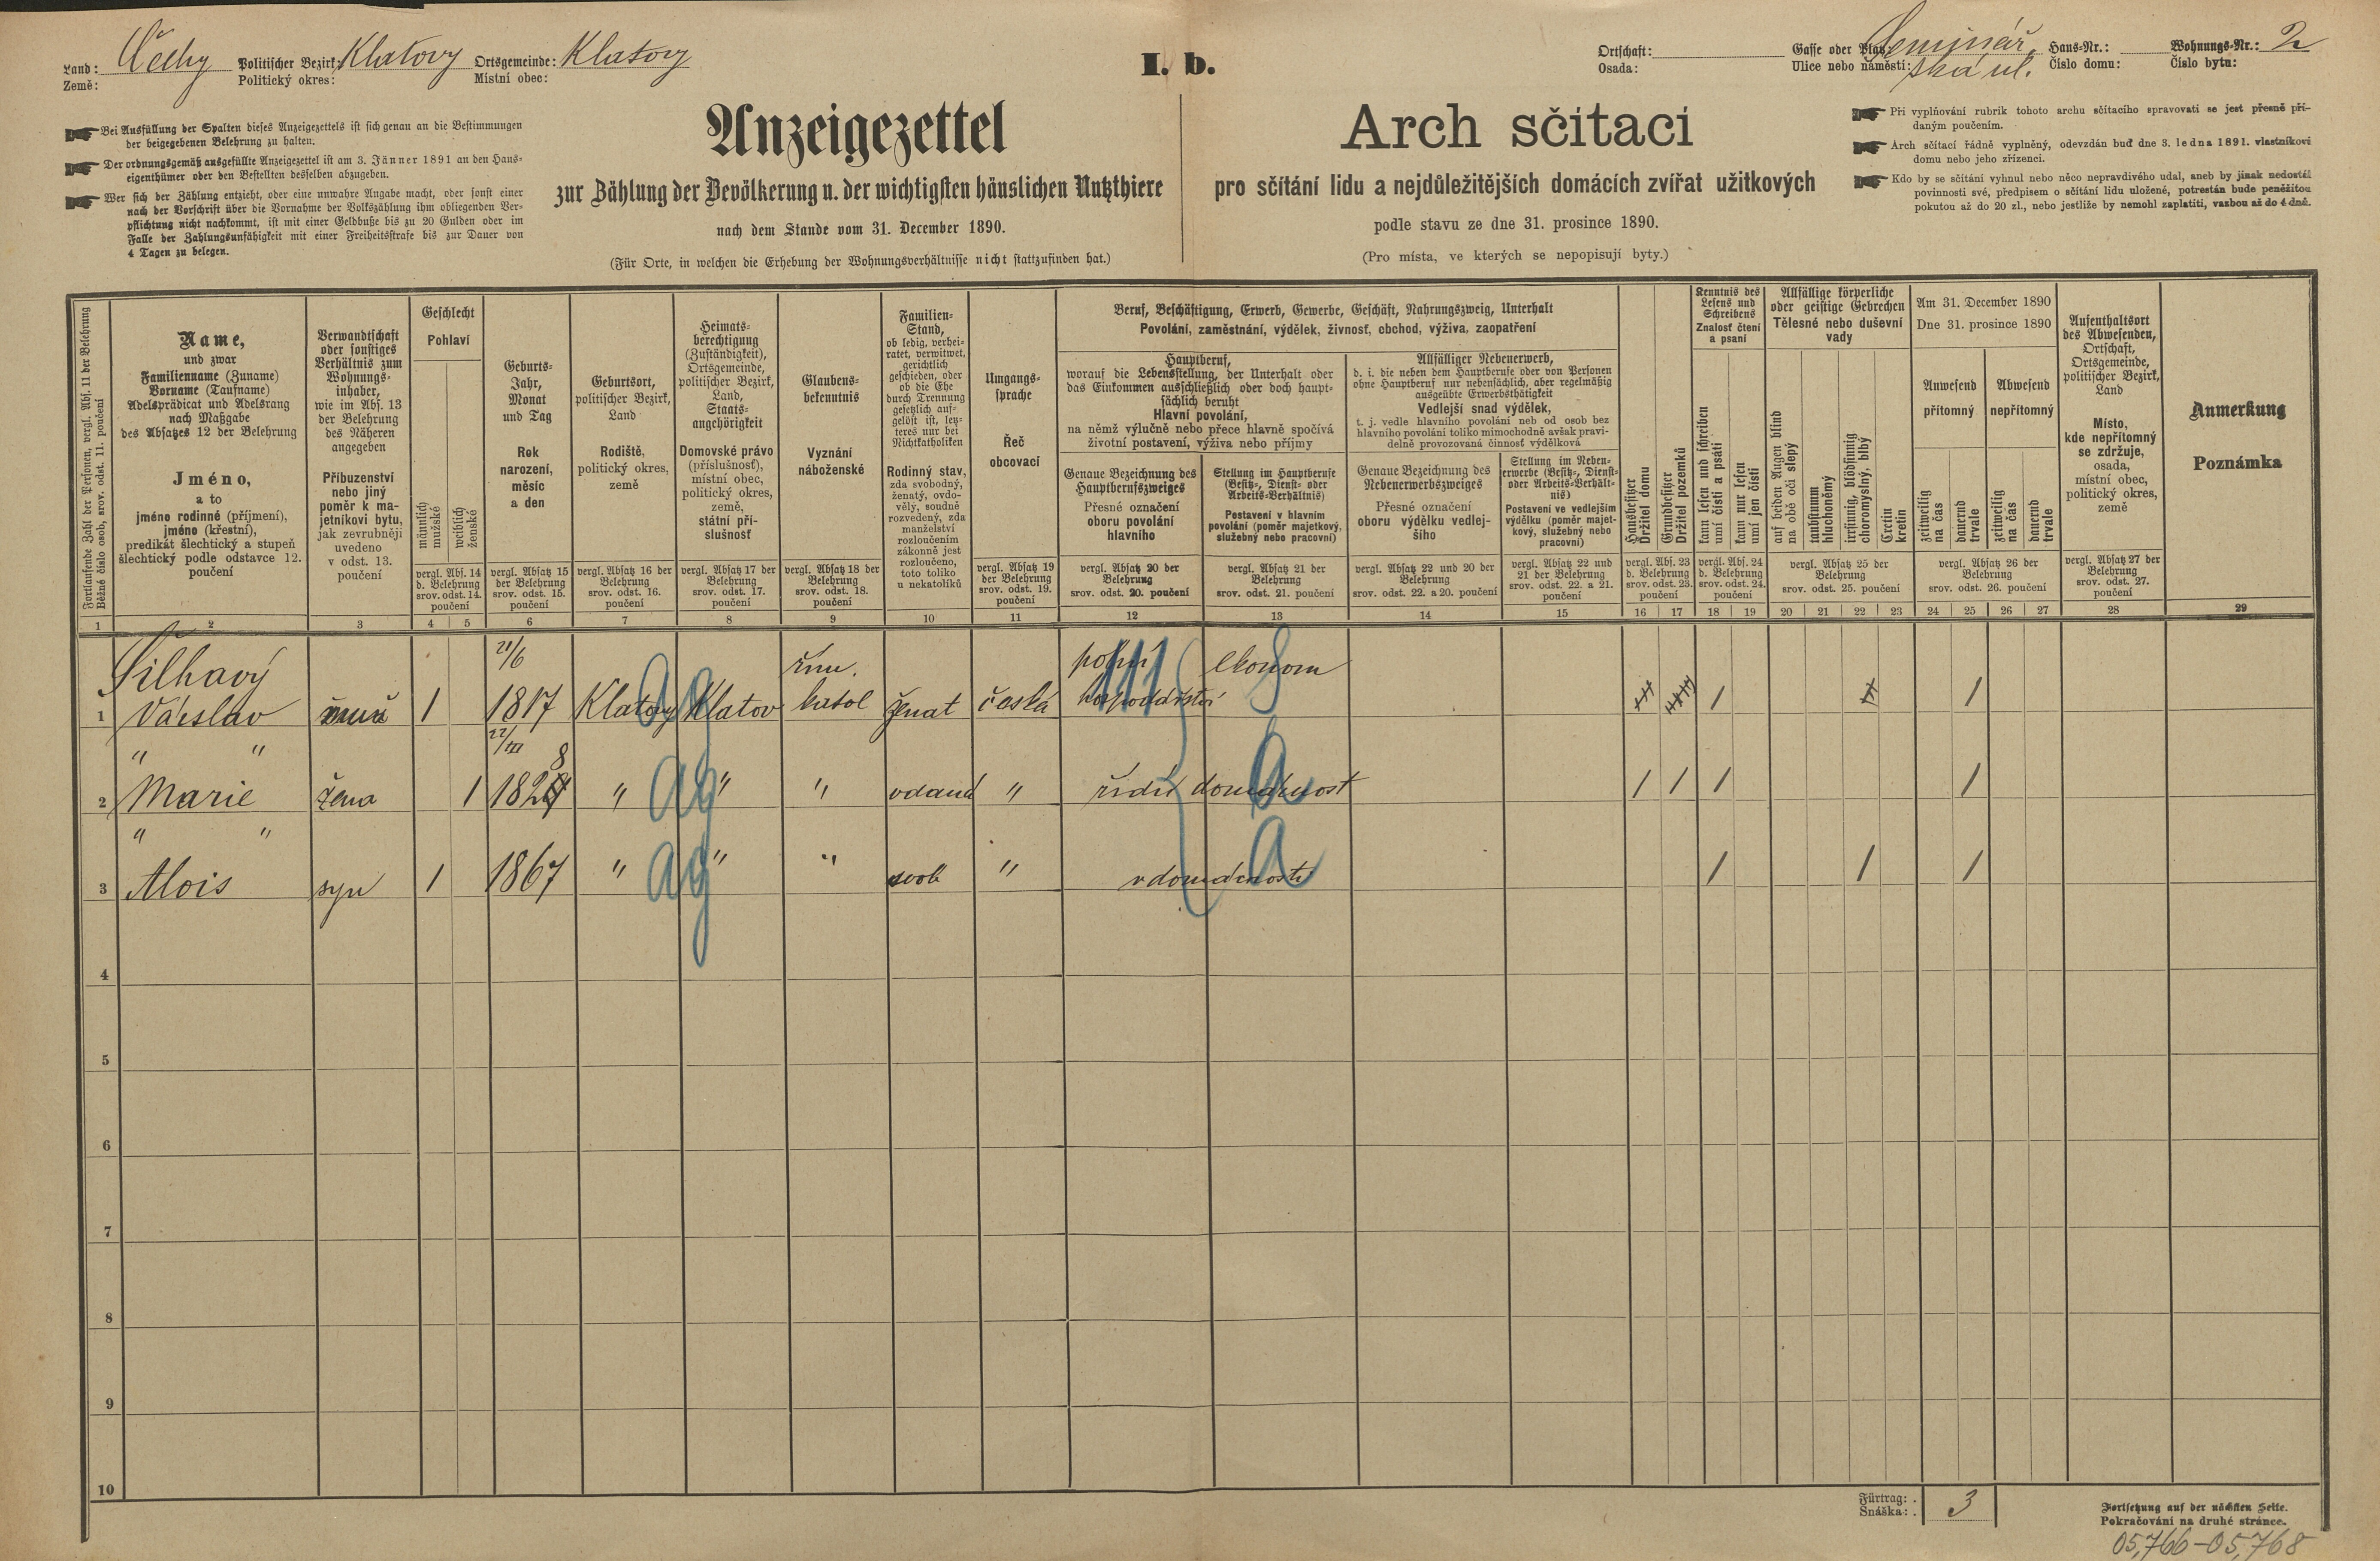 Land: Čechy Politischer Bezirk: Klatovy Ortsgemeinde: Klatovy
Země: Politický okres: Místní obec:
I. b.
Ortschaft: Gasse oder Platz: Seminář- Haus-Nr.: Wohnungs-Nr.: 2
Osada: Ulice nebo náměstí: ská ul. Číslo domu: Číslo bytu:
Bei Ausfüllung der Spalten dieses Anzeigezettels ist sich genau an die Bestimmungen
der beigegebenen Belehrung zu halten.
Der ordnungsgemäß ausgefüllte Anzeigezettel ist am 3. Jänner 1891 an den Haus-
eigenthümer oder den Bestellten desselben abzugeben.
Wer sich der Zählung entzieht, oder eine unwahre Angabe macht, oder sonst einer
nach der Vorschrift über die Vornahme der Volkszählung ihm obliegenden Ver-
pflichtung nicht nachkommt, ist mit einer Geldbuße bis zu 20 Gulden oder im
Falle der Zahlungsunfähigkeit mit einer Freiheitsstrafe bis zur Dauer von
4 Tagen zu belegen.
Anzeigezettel
zur Zählung der Bevölkerung u. der wichtigsten häuslichen Nutzthiere
nach dem Stande vom 31. December 1890.
(Für Orte, in welchen die Erhebung der Wohnungsverhältnisse nicht stattzufinden hat.)
Arch sčítací
pro sčítání lidu a nejdůležitějších domácích zvířat užitkových
podle stavu ze dne 31. prosince 1890.
(Pro místa, ve kterých se nepopisují byty.)
Při vyplňování rubrik tohoto archu sčítacího spravovati se jest přesně pří-
daným poučením.
Arch sčítací řádně vyplněný, odevzdán buď dne 3. ledna 1891. vlastníkovi
domu nebo jeho zřízenci.
Kdo by se sčítání vyhnul nebo něco nepravdivého udal, aneb by jinak nedostál
povinnosti své, předpisem o sčítání lidu uložené, potrestán bude peněžitou
pokutou až do 20 zl., nebo jestliže by nemohl zaplatiti, vazbou až do 4 dnů.
Fortlaufende Zahl der Personen, vergl. Abs. 11 der Belehrung
Běžné číslo osob, srov. odst. 11. poučení
Name,
und zwar
Familienname (Zuname)
Vorname (Taufname)
Adelsprädicat und Adelsrang
nach Maßgabe
des Absatzes 12 der Belehrung
Jméno,
a to
jméno rodinné (příjmení),
jméno (křestní),
predikát šlechtický a stupeň
šlechtický podle odstavce 12.
poučení
Verwandtschaft
oder sonstiges
Verhältnis zum
Wohnungs-
inhaber,
wie im Abs. 13
der Belehrung
des Näheren
angegeben
Příbuzenství
nebo jiný
poměr k ma-
jetníkovi bytu,
jak zevrubněji
uvedeno
v odst. 13.
poučení
Geschlecht
Pohlaví
männlich
mužské
weiblich
ženské
vergl. Abs. 14
d. Belehrung
srov. odst. 14.
poučení
Geburts-
Jahr,
Monat
und Tag
Rok
narození,
měsíc
a den
vergl. Absatz 15
der Belehrung
srov. odst. 15.
poučení
Geburtsort,
politischer Bezirk,
Land
Rodiště,
politický okres,
země
vergl. Absatz 16 der
Belehrung
srov. odst. 16.
poučení
Heimats-
berechtigung
(Zuständigkeit),
Ortsgemeinde,
politischer Bezirk,
Land,
Staats-
angehörigkeit
Domovské právo
(příslušnosť),
místní obec,
politický okres,
země,
státní pří-
slušnosť
vergl. Absatz 17 der
Belehrung
srov. odst. 17.
poučení
Glaubens-
bekenntnis
Vyznání
náboženské
vergl. Absatz 18 der
Belehrung
srov. odst. 18.
poučení
Familien-
Stand,
ob ledig, verhei-
ratet, verwitwet,
gerichtlich
geschieden, oder
ob die Ehe
durch Trennung
gesetzlich auf-
gelöst ist, letz-
teres nur bei
Nichtkatholiken
Rodinný stav,
zda svobodný,
ženatý, ovdo-
věly, soudně
rozvedený, zda
manželství
rozloučením
zákonně jest
rozloučeno,
toto toliko
u nekatolíků
Umgangs-
sprache
Řeč
obcovací
vergl. Absatz 19
der Belehrung
srov. odst. 19.
poučení
Beruf, Beschäftigung, Erwerb, Gewerbe, Geschäft, Nahrungszweig, Unterhalt
Povolání, zaměstnání, výdělek, živnosť, obchod, výživa, zaopatření
Hauptberuf,
worauf die Lebensstellung, der Unterhalt oder
das Einkommen ausschließlich oder doch haupt-
sächlich beruht
Hlavní povolání,
na němž výlučně nebo přece hlavně spočívá
životní postavení, výživa nebo příjmy
Genaue Bezeichnung des
Hauptberufszweiges
Přesné označení
oboru povolání
hlavního
vergl. Absatz 20 der
Belehrung
srov. odst. 20. poučení
Stellung im Hauptberufe
(Besitz-, Dienst- oder
Arbeits-Verhältnis)
Postavení v hlavním
povolání (poměr majetkový,
služebný nebo pracovní)
vergl. Absatz 21 der
Belehrung
srov. odst. 21. poučení
Allfälliger Nebenerwerb,
d. i. die neben dem Hauptberufe oder von Personen
ohne Hauptberuf nur nebensächlich, aber regelmäßig
ausgeübte Erwerbsthätigkeit
Vedlejší snad výdělek,
t. j. vedle hlavního povolání neb od osob bez
hlavního povolání toliko mimochodně avšak pravi-
delně provozovaná činnosť výdělková
Genaue Bezeichnung des
Nebenerwerbszweiges
Přesné označení
oboru výdělku vedlej-
šího
vergl. Absatz 22 und 20 der
Belehrung
srov. odst. 22. a 20. poučení
Stellung im Neben-
erwerbe (Besitz-, Dienst-
oder Arbeits-Verhält-
nis)
Postavení ve vedlejším
výdělku (poměr majet-
kový, služebný nebo
pracovní)
vergl. Absatz 22 und
21 der Belehrung
srov. odst. 22. a 21.
poučení
Hausbesitzer
Držitel domu
Grundbesitzer
Držitel pozemků
vergl. Abs. 23
d. Belehrung
srov. odst. 23.
poučení
Kenntnis des
Lesens und
Schreibens
Znalosť čtení
a psaní
kann lesen und schreiben
umí čísti a psáti
kann nur lesen
umí jen čísti
vergl. Abs. 24
d. Belehrung
srov. odst. 24.
poučení
Allfällige körperliche
oder geistige Gebrechen
Tělesné nebo duševní
vady
auf beiden Augen blind
na obě oči slepý
taubstumm
hluchoněmý
irrsinnig, blödsinnig
choromyslný, blbý
Cretin
kretin
vergl. Absatz 25 der
Belehrung
srov. odst. 25. poučení
Am 31. December 1890
Dne 31. prosince 1890
Anwesend
přítomný
Abwesend
nepřítomný
zeitweilig
na čas
dauernd
trvale
zeitweilig
na čas
dauernd
trvale
vergl. Absatz 26 der
Belehrung
srov. odst. 26. poučení
Aufenthaltsort
des Abwesenden,
Ortschaft,
Ortsgemeinde,
politischer Bezirk,
Land
Místo,
kde nepřítomný
se zdržuje,
osada,
místní obec,
politický okres,
země
vergl. Absatz 27 der
Belehrung
srov. odst. 27.
poučení
Anmerkung
Poznámka
1 2 3 4 5 6 7 8 9 10 11 12 13 14 15 16 17 18 19 20 21 22 23 24 25 26 27 28 29
Šilhavý 21/6 řím. polní ekonom
1 Václav muž 1 1817 Klatovy Klatov katol ženat česká hospodářství 1 1
" " 22/III 8
2 Marie žena 1 182 " " " vdaná " řídí domácnost 1 1 1 1
" "
3 Alois syn 1 1867 " " " svob " v domácnosti 1 1 1
4
5
6
7
8
9
10
Fürtrag: .
Snáška: . 3
Fortsetzung auf der nächsten Seite.
Pokračování na druhé stránce.
05,766-05,768